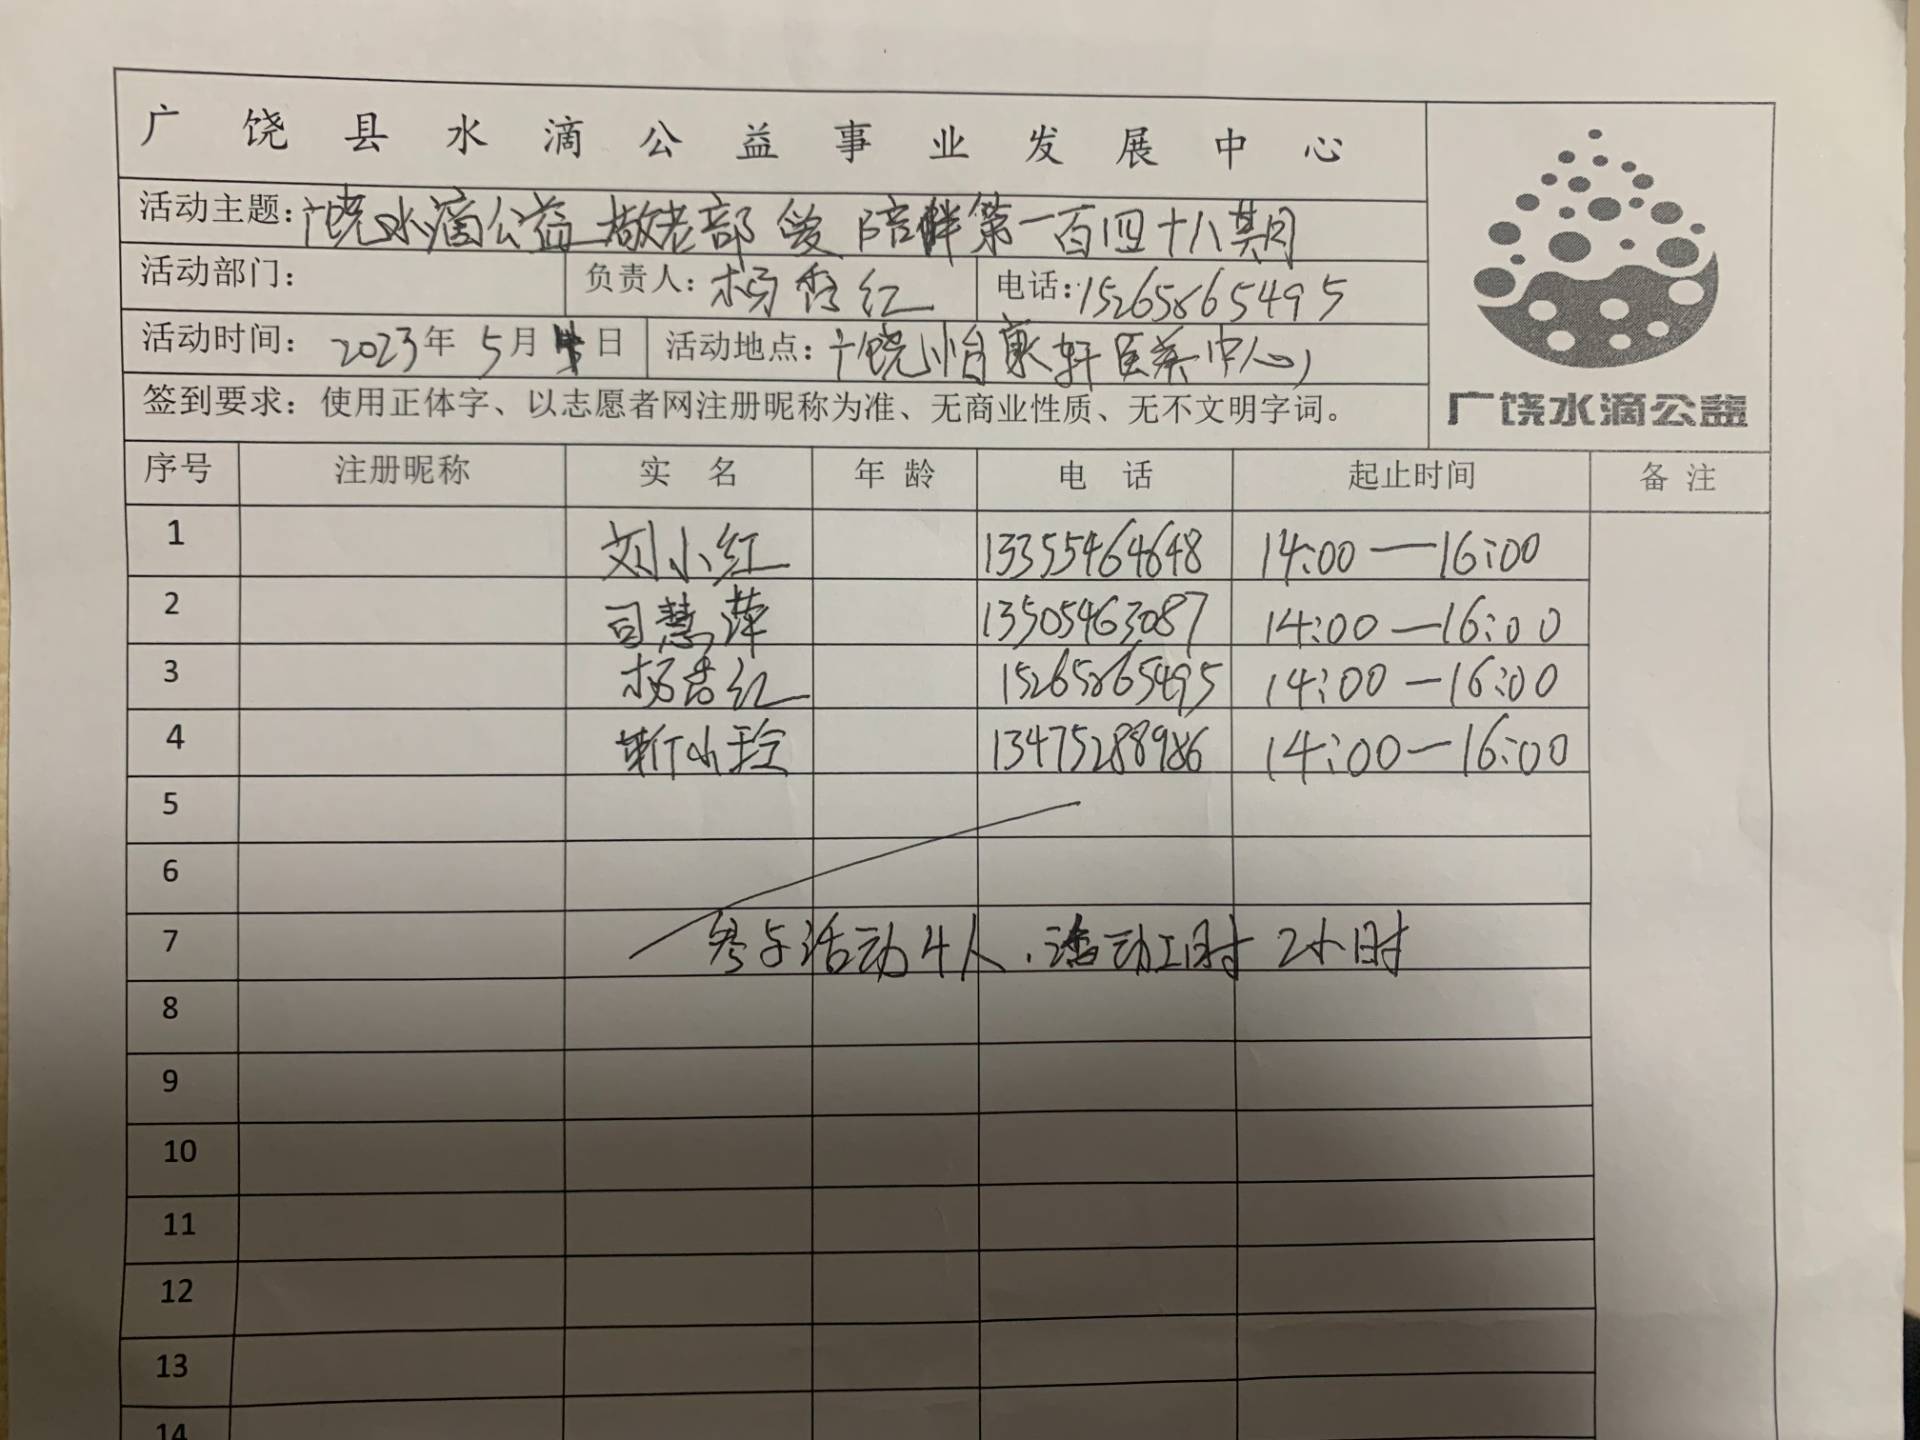 广饶县水滴公益事业发展中心
活动主题：广饶水滴公益敬老部爱陪伴第一百四十八期
活动部门： 负责人：杨秀红 电话：15265865495
活动时间：2023年5月日 活动地点：广饶怡康轩医养中心
签到要求：使用正体字、以志愿者网注册昵称为准、无商业性质、无不文明字词。
广饶水滴公益
序号 注册昵称 实名 年龄 电话 起止时间 备注
1 刘小红 13355464648 14:00—16:00
2 司慧萍 13505463087 14:00—16:00
3 杨秀红 15265865495 14:00—16:00
4 靳小玲 13475288986 14:00—16:00
5
6
7 参与活动4人.活动工时2小时
8
9
10
11
12
13
14